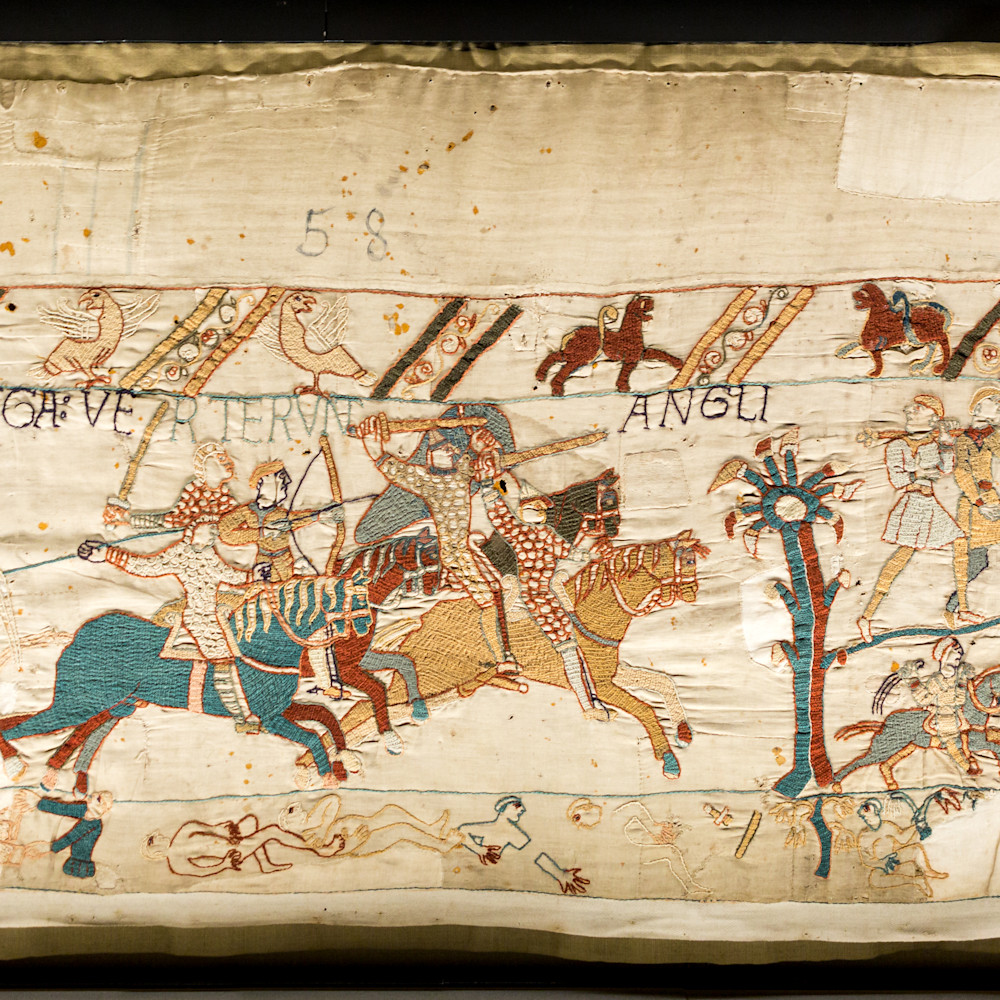 58
GA: VERTERVNT ANGLI